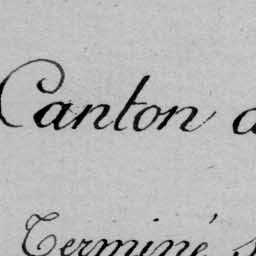 Canton
Terminé